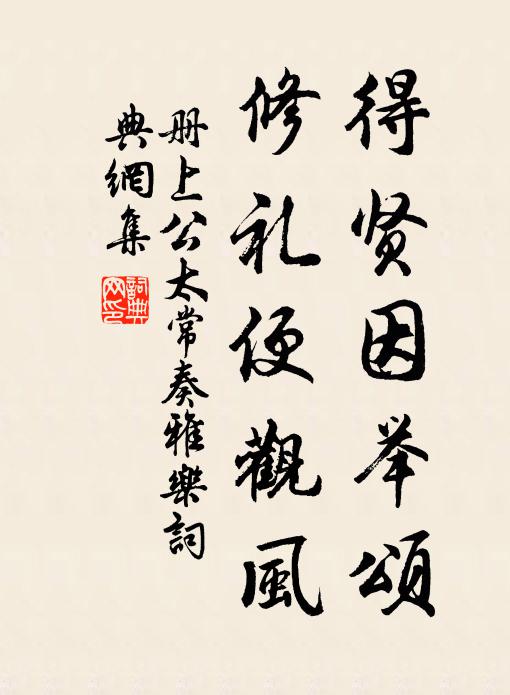 得贤因举頌
修礼便觀風
册上公太常奏雅樂詞
典網集
詞典
网印